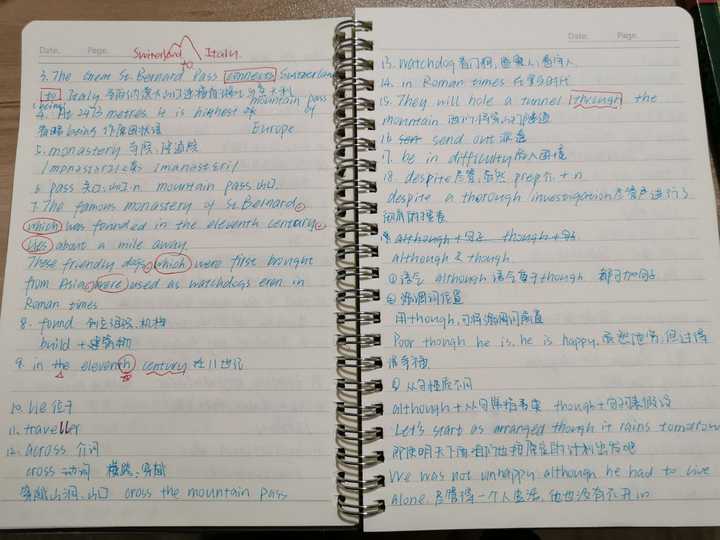 Date. Page.
Switzerland Italy.
3. The Great St. Bernard Pass connects Switzerland
to Italy
(being) mountain pass
4. At 2473 metres it is highest
省略being 作原因状语 Europe
5. monastery 寺院、修道院
6. pass 关口、山口 n. mountain pass 山口
7. The famous monastery of St. Bernard,
which was founded in the eleventh century,
lies about a mile away
These friendly dogs, which were first brought
from Asia, were used as watchdogs even in
Roman times
8. found 创立组织、机构
build + 建筑物
9. in the eleventh century 在11世纪
10. lie 位于
11. traveller
12. across 介词
cross 动词 横跨、穿越
穿越山洞、山口 cross the mountain pass
Date. Page.
13. watchdog 看门狗,监察人,看守人
14. in Roman times 在罗马时代
15. They will hole a tunnel through the
mountain 他们将穿山打隧道
16. send out 派遣
17. be in difficulty 陷入困境
18. despite 尽管,虽然 prep介 + n
despite a thorough investigation 尽管已进行了
彻底的搜查
although + 句子 though + 句子
although 与 though
① 语气 although 语气重于though 都可加句子
② 强调词位置
用though,可将强调词前置
Poor though he is, he is happy. 虽然他穷,但过得
很幸福
③ 从句性质不同
although + 从句 只指事实 though + 句子可表假设
Let's start as arranged though it rains tomorrow
即使明天下雨 咱们也按原定的计划出发吧
We was not unhappy although he had to live
alone. 尽管得一个人生活,他也没有不开心